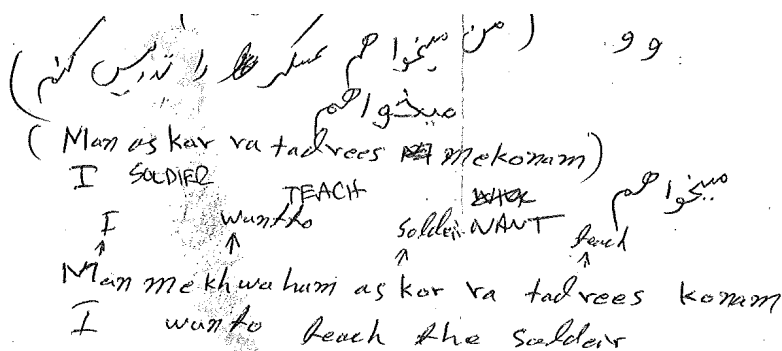 (من میخواهم عسکر را تدریس کنم) وو
میخواهم
(Man askar ra tadrees mekonam)
I SOLDIER TEACH WANT
میخواهم
I want to soldeir teach
Man mekhwaham askar ra tadrees konam
I wanto teach the soldeir